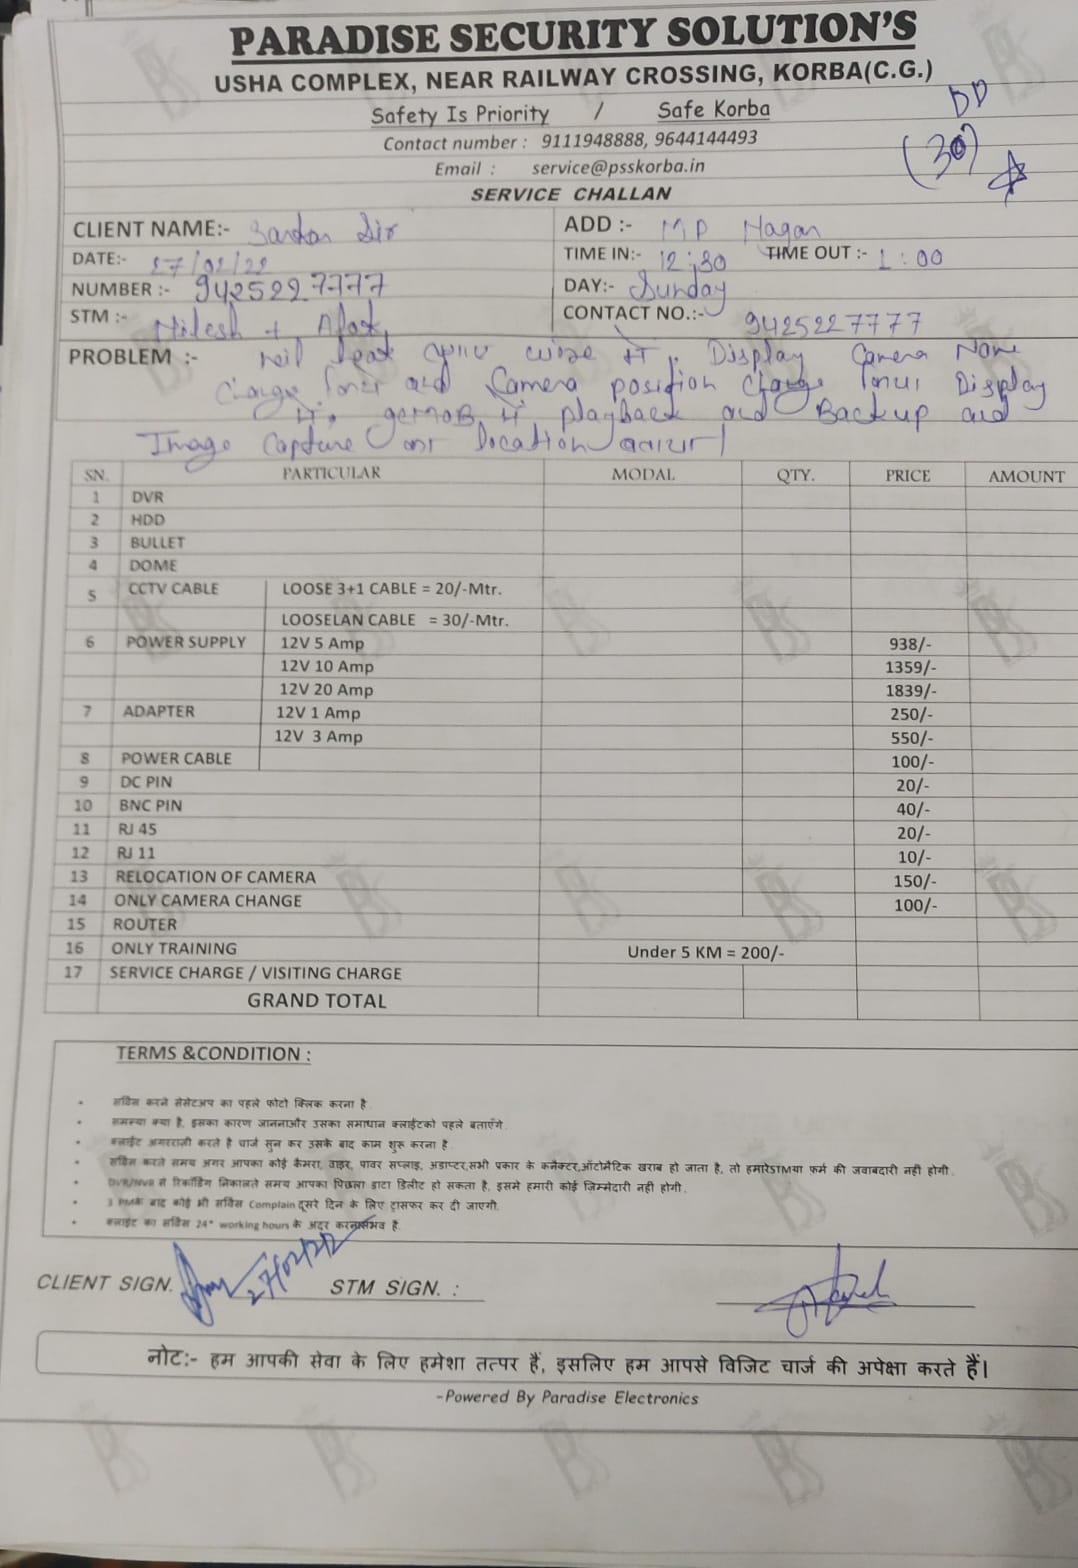 PARADISE SECURITY SOLUTION'S
USHA COMPLEX, NEAR RAILWAY CROSSING, KORBA(C.G.)
DD
Safety Is Priority / Safe Korba
(30)
Contact number : 9111948888, 9644144493
Email : service@psskorba.in
SERVICE CHALLAN
CLIENT NAME:- Sir ADD :- MP Nagar
DATE:- 27/02/22 TIME IN:- 12:30 TIME OUT :- 1:00
NUMBER :- 9425227777 DAY:- Sunday
STM :- Nilesh + CONTACT NO.:- 9425227777
PROBLEM :- wise Display Camera Name
Change and Camera position change Display
playback and Backup and
Image Capture Location
SN. PARTICULAR MODAL QTY. PRICE AMOUNT
1 DVR
2 HDD
3 BULLET
4 DOME
5 CCTV CABLE LOOSE 3+1 CABLE = 20/-Mtr.
LOOSELAN CABLE = 30/-Mtr.
6 POWER SUPPLY 12V 5 Amp 938/-
12V 10 Amp 1359/-
12V 20 Amp 1839/-
7 ADAPTER 12V 1 Amp 250/-
12V 3 Amp 550/-
8 POWER CABLE 100/-
9 DC PIN 20/-
10 BNC PIN 40/-
11 RJ 45 20/-
12 RJ 11 10/-
13 RELOCATION OF CAMERA 150/-
14 ONLY CAMERA CHANGE 100/-
15 ROUTER
16 ONLY TRAINING Under 5 KM = 200/-
17 SERVICE CHARGE / VISITING CHARGE
GRAND TOTAL
TERMS &CONDITION :
सर्विस करने सेसेटअप का पहले फोटो क्लिक करना है
समस्या क्या है, इसका कारण जाननाऔर उसका समाधान क्लाईटको पहले बताएँगे.
क्लाईट अगरराजी करते है चार्ज सुन कर उसके बाद काम शुरू करना है
सर्विस करते समय अगर आपका कोई कैमरा, वाइर, पावर सप्लाइ, अडाप्टर,सभी प्रकार के कनेक्टर,ऑटोमैटिक खराब हो जाता है, तो हमारेSTMया फर्म की जवाबदारी नही होगी.
DVR/NVR से रिकॉर्डिंग निकालते समय आपका पिछला डाटा डिलीट हो सकता है, इसमे हमारी कोई ज़िम्मेदारी नही होगी.
3 PMके बाद कोई भी सर्विस Complain दूसरे दिन के लिए ट्रांसफर कर दी जाएगी.
क्लाईट का सर्विस 24* working hours के अंदर करनासंभव है.
CLIENT SIGN. 27/02/22 STM SIGN. :
नोट:- हम आपकी सेवा के लिए हमेशा तत्पर हैं, इसलिए हम आपसे विजिट चार्ज की अपेक्षा करते हैं।
-Powered By Paradise Electronics